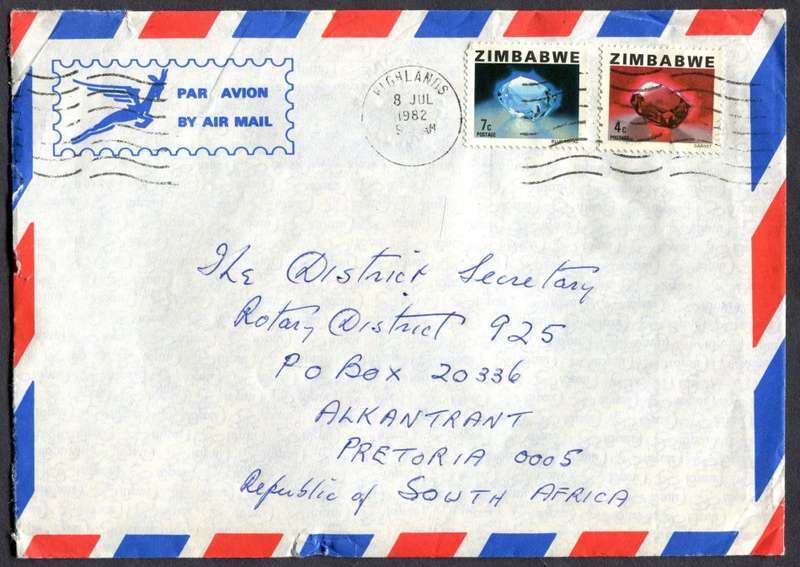 PAR AVION
BY AIR MAIL
HIGHLANDS
8 JUL
1982
AM
ZIMBABWE
7c
POSTAGE
ZIMBABWE
4c
POSTAGE
GARNET
The District Secretary
Rotary District 925
PO Box 20336
ALKANTRANT
PRETORIA 0005
Republic of SOUTH AFRICA